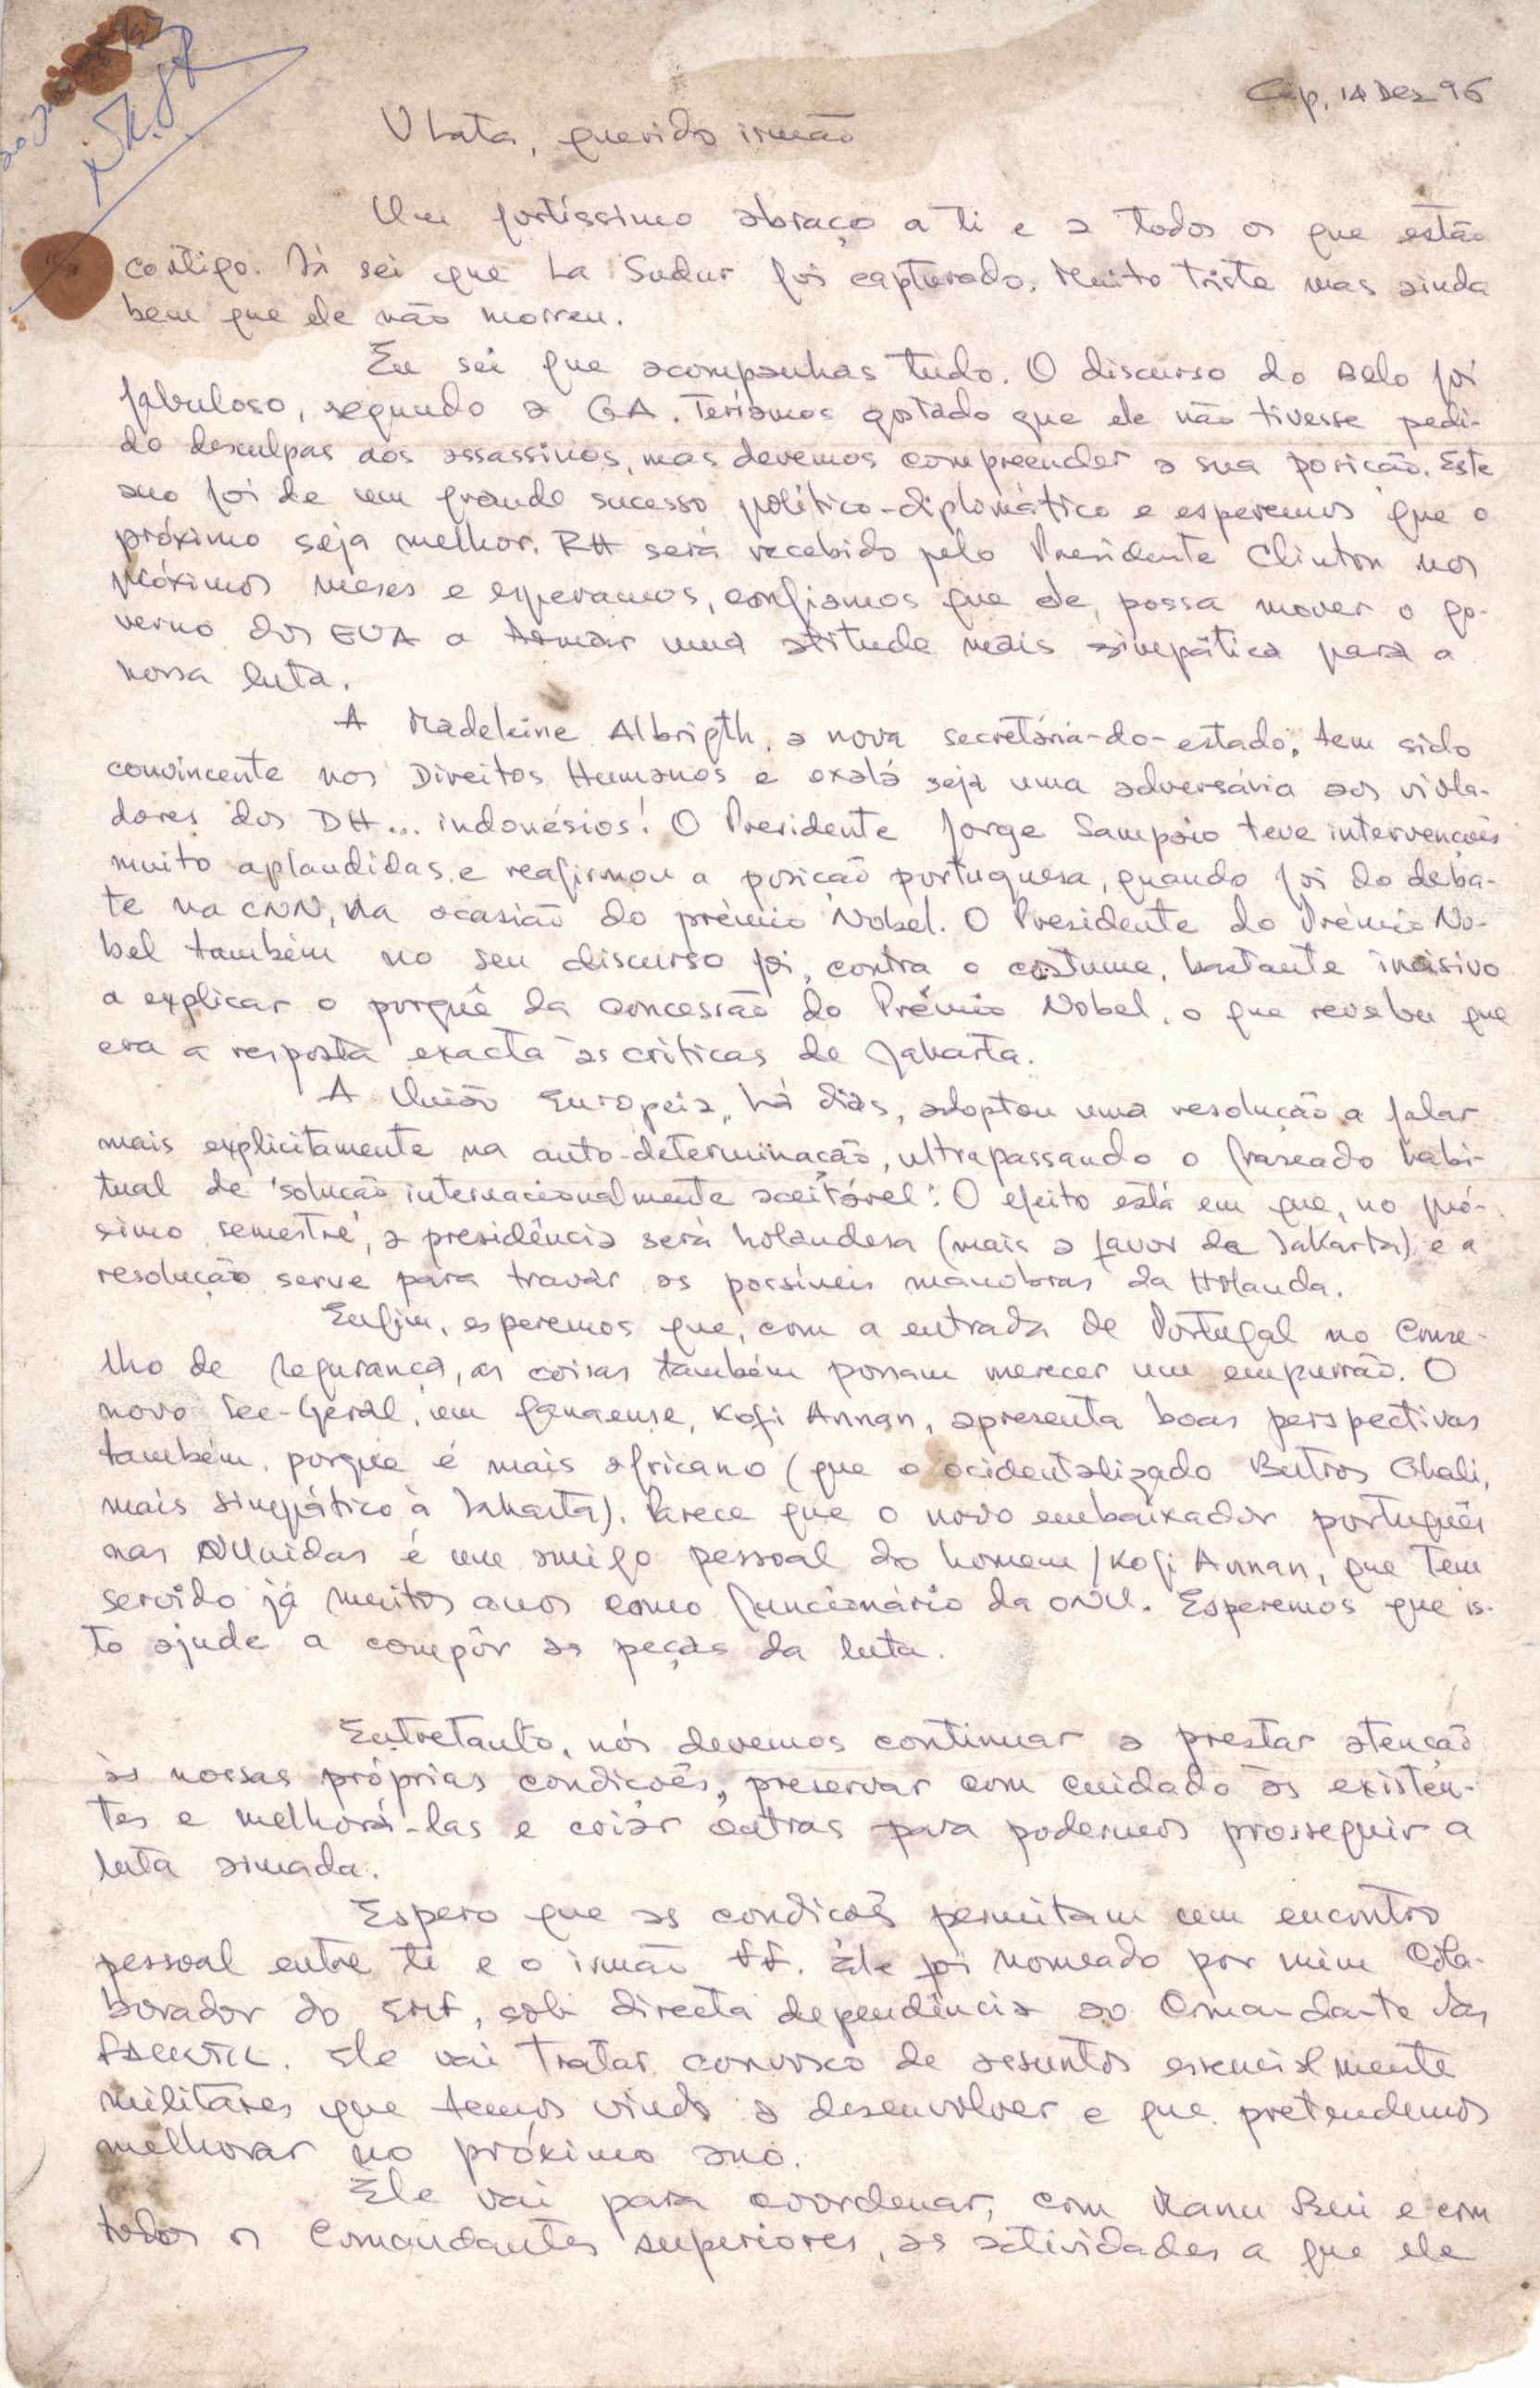 Cip, 14 Dez 96
Ulata, querido irmão
Um fortíssimo abraço a ti e a todos os que estão
contigo. Já sei que La Sudur foi capturado. Muito triste mas ainda
bem que ele não morreu.
Eu sei que acompanhas tudo. O discurso do Belo foi
fabuloso, segundo a GA. Teríamos gostado que ele não tivesse pedi-
do desculpas aos assassinos, mas devemos compreender a sua posição. Este
ano foi de um grande sucesso político-diplomático e esperemos que o
próximo seja melhor. RH será recebido pelo Presidente Clinton nos
próximos meses e esperamos, confiamos que ele possa mover o go-
verno dos EUA a tomar uma atitude mais simpática para a
nossa luta.
A Madeleine Albrigth, a nova secretária-do-estado, tem sido
convincente nos Direitos Humanos e oxalá seja uma adversária aos viola-
dores dos DH... indonésios! O Presidente Jorge Sampaio teve intervenções
muito aplaudidas e reafirmou a posição portuguesa, quando foi do deba-
te na CNN, na ocasião do prémio Nobel. O Presidente do Prémio No-
bel também no seu discurso foi, contra o costume, bastante incisivo
a explicar o porquê da concessão do Prémio Nobel, o que revelou que
era a resposta exacta às críticas de Jakarta.
A União Europeia, há dias, adoptou uma resolução a falar
mais explicitamente na auto-determinação, ultrapassando o fraseado habi-
tual de 'solução internacionalmente aceitável'. O efeito está em que, no pró-
simo semestre, a presidência será holandesa (mais a favor de Jakarta) e a
resolução serve para travar as possíveis manobras da Holanda.
Enfim, esperemos que, com a entrada de Portugal no Conse-
lho de Segurança, as coisas também possam merecer um empurrão. O
novo Sec-Geral, um ganaense, Kofi Annan, apresenta boas perspectivas
também, porque é mais africano (que o ocidentalizado Butros Ghali,
mais simpático à Jakarta). Parece que o novo embaixador português
nas NUnidas é um amigo pessoal do homem/Kofi Annan, que tem
servido já muitos anos como funcionário da ONU. Esperemos que is-
to ajude a compôr as peças da luta.
Entretanto, nós devemos continuar a prestar atenção
às nossas próprias condições, preservar com cuidado as existen-
tes e melhorá-las e criar outras para podermos prosseguir a
luta armada.
Espero que as condições permitam um encontro
pessoal entre ti e o irmão FF. Ele foi nomeado por mim Cola-
borador do EMF, sob directa dependência ao Comandante das
FALINTIL. Ele vai tratar convosco de assuntos essencialmente
militares que temos vindo a desenvolver e que pretendemos
melhorar no próximo ano.
Ele vai para coordenar, com Nanu Rui e com
todos os Comandantes superiores, as actividades a que ele